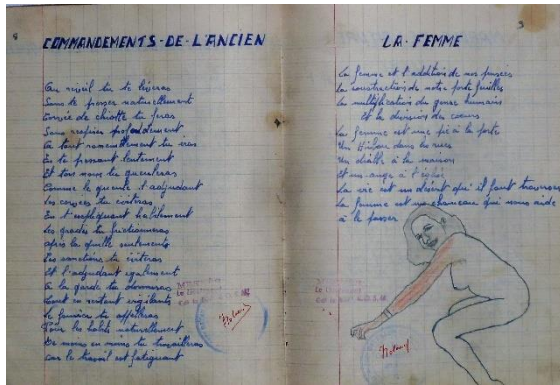 8
COMMANDEMENTS-DE-L'ANCIEN
Au réveil tu te lèveras
Sans te presser naturellement
Corvée de chiotte tu feras
Sans respirer profondément
Au tout rassemblement tu iras
En te pressant lentement
Et tous nous tu gueuleras
Comme le gueule l'adjudant
Les corvées tu éviteras
En t'expliquant habilement
Les gradés tu frictionneras
après la quille seulement
Les sanctions tu éviteras
Et l'adjudant également
A la garde tu dormiras
tout en restant vigilant
le fourrier tu appelleras
Pour les habits naturellement
De moins en moins tu travailleras
car le travail est fatiguant
9
LA-FEMME
La femme est l'addition de nos pensées
La soustraction de notre porte feuilles
La multiplication du genre humains
Et la division des coeurs
La femme est une pie à la porte
Un Hibou dans les rues
Un diable à la maison
Et un ange à l'église
La vie est un désert qu'il faut traverser
La femme est un chameau qui nous aide
à le passer